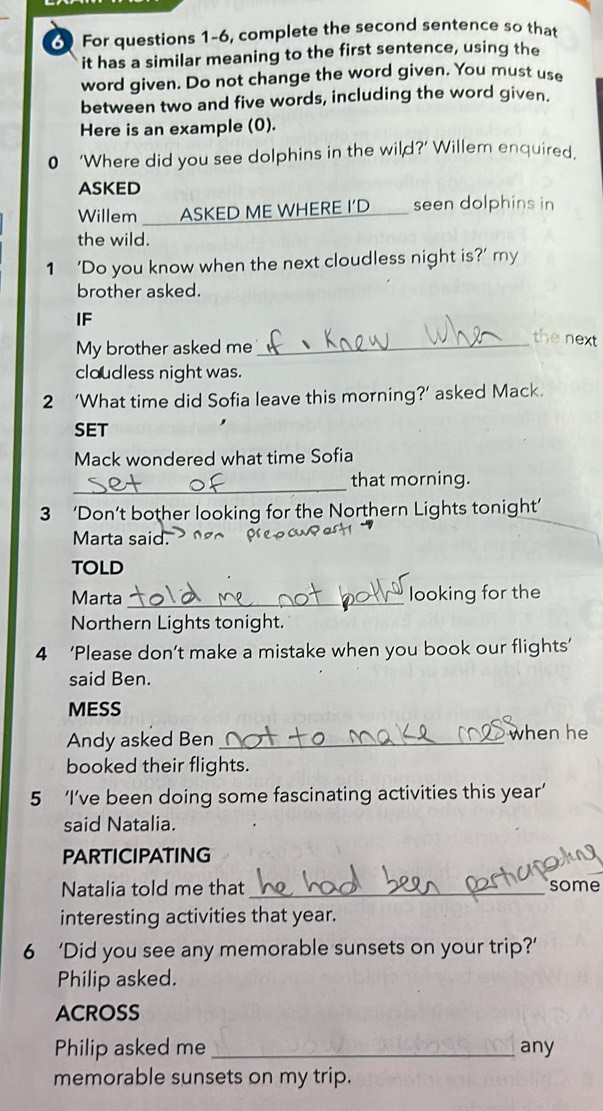 6 For questions 1-6, complete the second sentence so that
it has a similar meaning to the first sentence, using the
word given. Do not change the word given. You must use
between two and five words, including the word given.
Here is an example (0).
0 ‘Where did you see dolphins in the wild?’ Willem enquired.
ASKED
Willem ASKED ME WHERE I’D seen dolphins in
the wild.
1 ‘Do you know when the next cloudless night is?’ my
brother asked.
IF
My brother asked me if I Knew When the next
cloudless night was.
2 ‘What time did Sofia leave this morning?’ asked Mack.
SET
Mack wondered what time Sofia
set of that morning.
3 ‘Don’t bother looking for the Northern Lights tonight’
Marta said. non preocuparti
TOLD
Marta told me not bother looking for the
Northern Lights tonight.
4 ‘Please don’t make a mistake when you book our flights’
said Ben.
MESS
Andy asked Ben not to make mess when he
booked their flights.
5 ‘I’ve been doing some fascinating activities this year’
said Natalia.
PARTICIPATING
Natalia told me that he had been participating some
interesting activities that year.
6 ‘Did you see any memorable sunsets on your trip?’
Philip asked.
ACROSS
Philip asked me any
memorable sunsets on my trip.